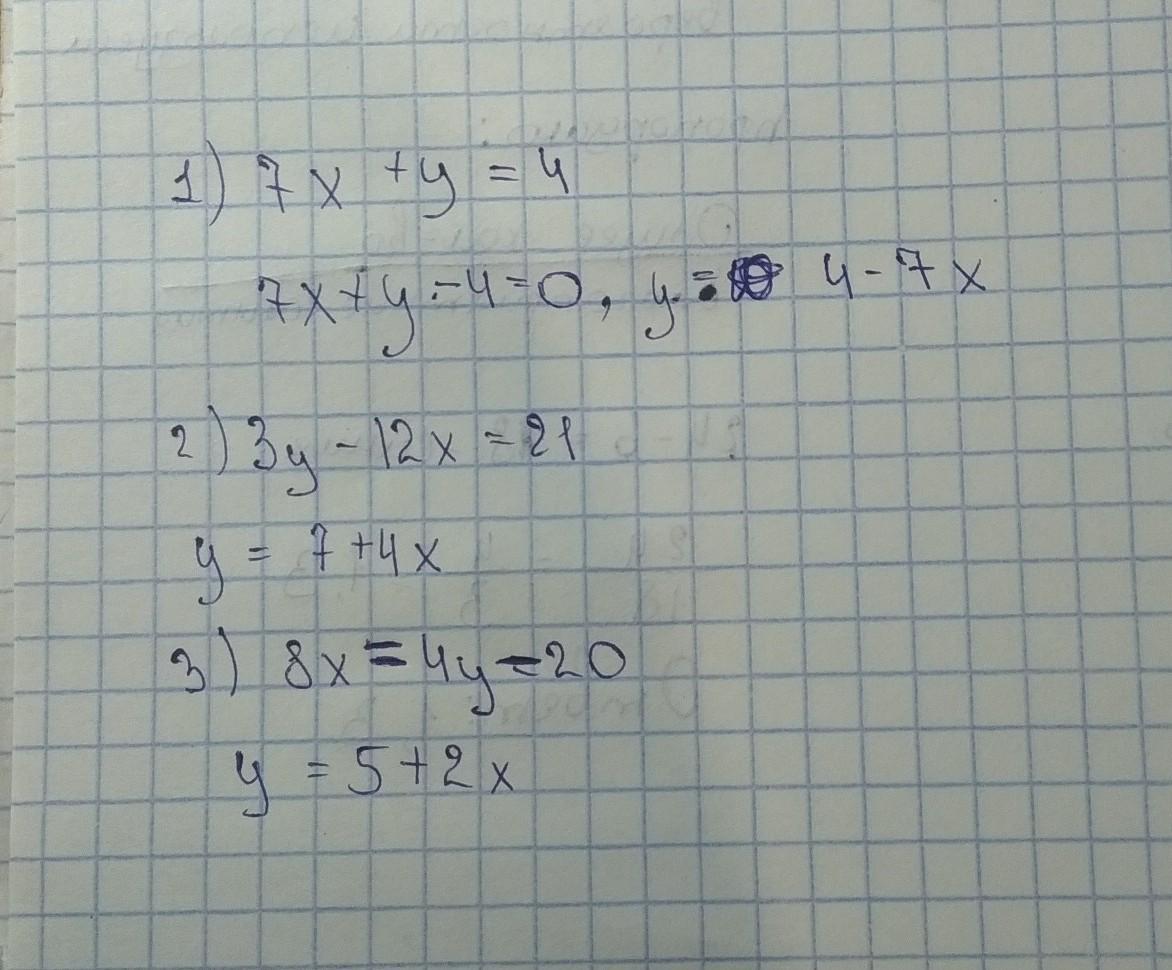 1) 7x + y = 4
7x + y - 4 = 0, y = 4 - 7x
2) 3y - 12x = 21
y = 7 + 4x
3) 8x = 4y - 20
y = 5 + 2x